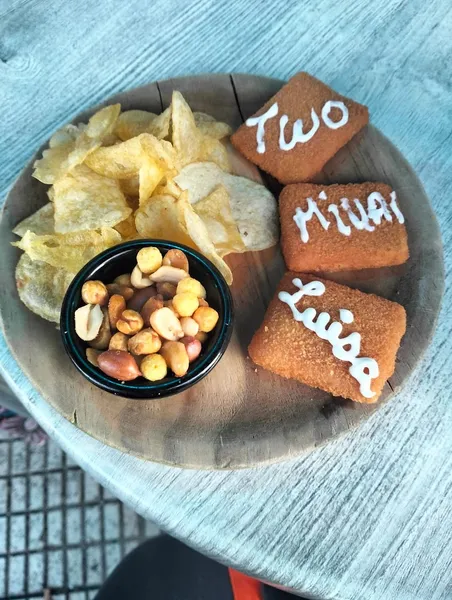 Two
Minai
Luisa